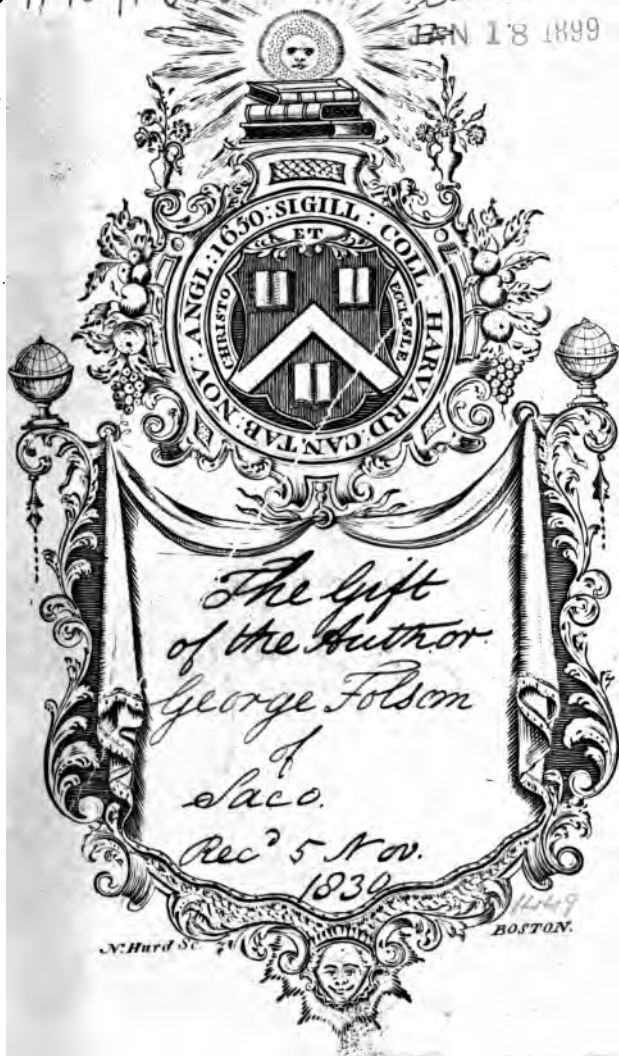 JAN 18 1899
SIGILL: COLL: HARVARD: CANTAB: NOV: ANGL: 1650:
ET
CHRISTO
ECCLESIÆ
The Gift
of the Author
George Folsom
of
Saco.
Recd 5 Nov.
1830
N. Hurd Sc.
BOSTON.